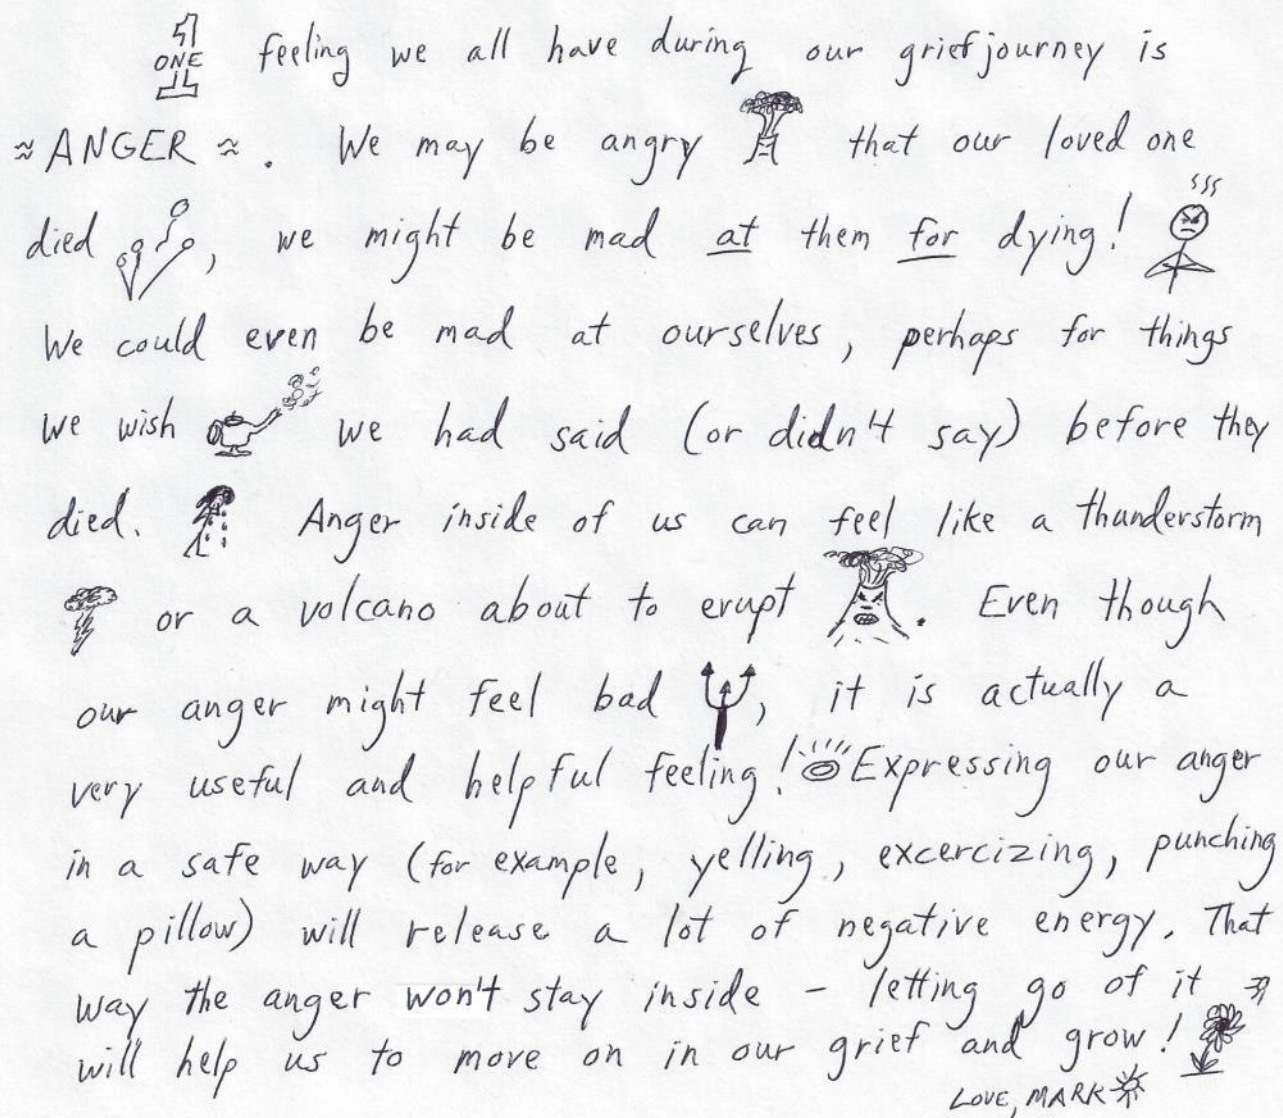 ONE feeling we all have during our grief journey is
≈ ANGER ≈. We may be angry that our loved one
died, we might be mad at them for dying!
We could even be mad at ourselves, perhaps for things
we wish we had said (or didn't say) before they
died. Anger inside of us can feel like a thunderstorm
or a volcano about to erupt. Even though
our anger might feel bad, it is actually a
very useful and helpful feeling! Expressing our anger
in a safe way (for example, yelling, excercizing, punching
a pillow) will release a lot of negative energy. That
way the anger won't stay inside - letting go of it
will help us to move on in our grief and grow!
LOVE, MARK